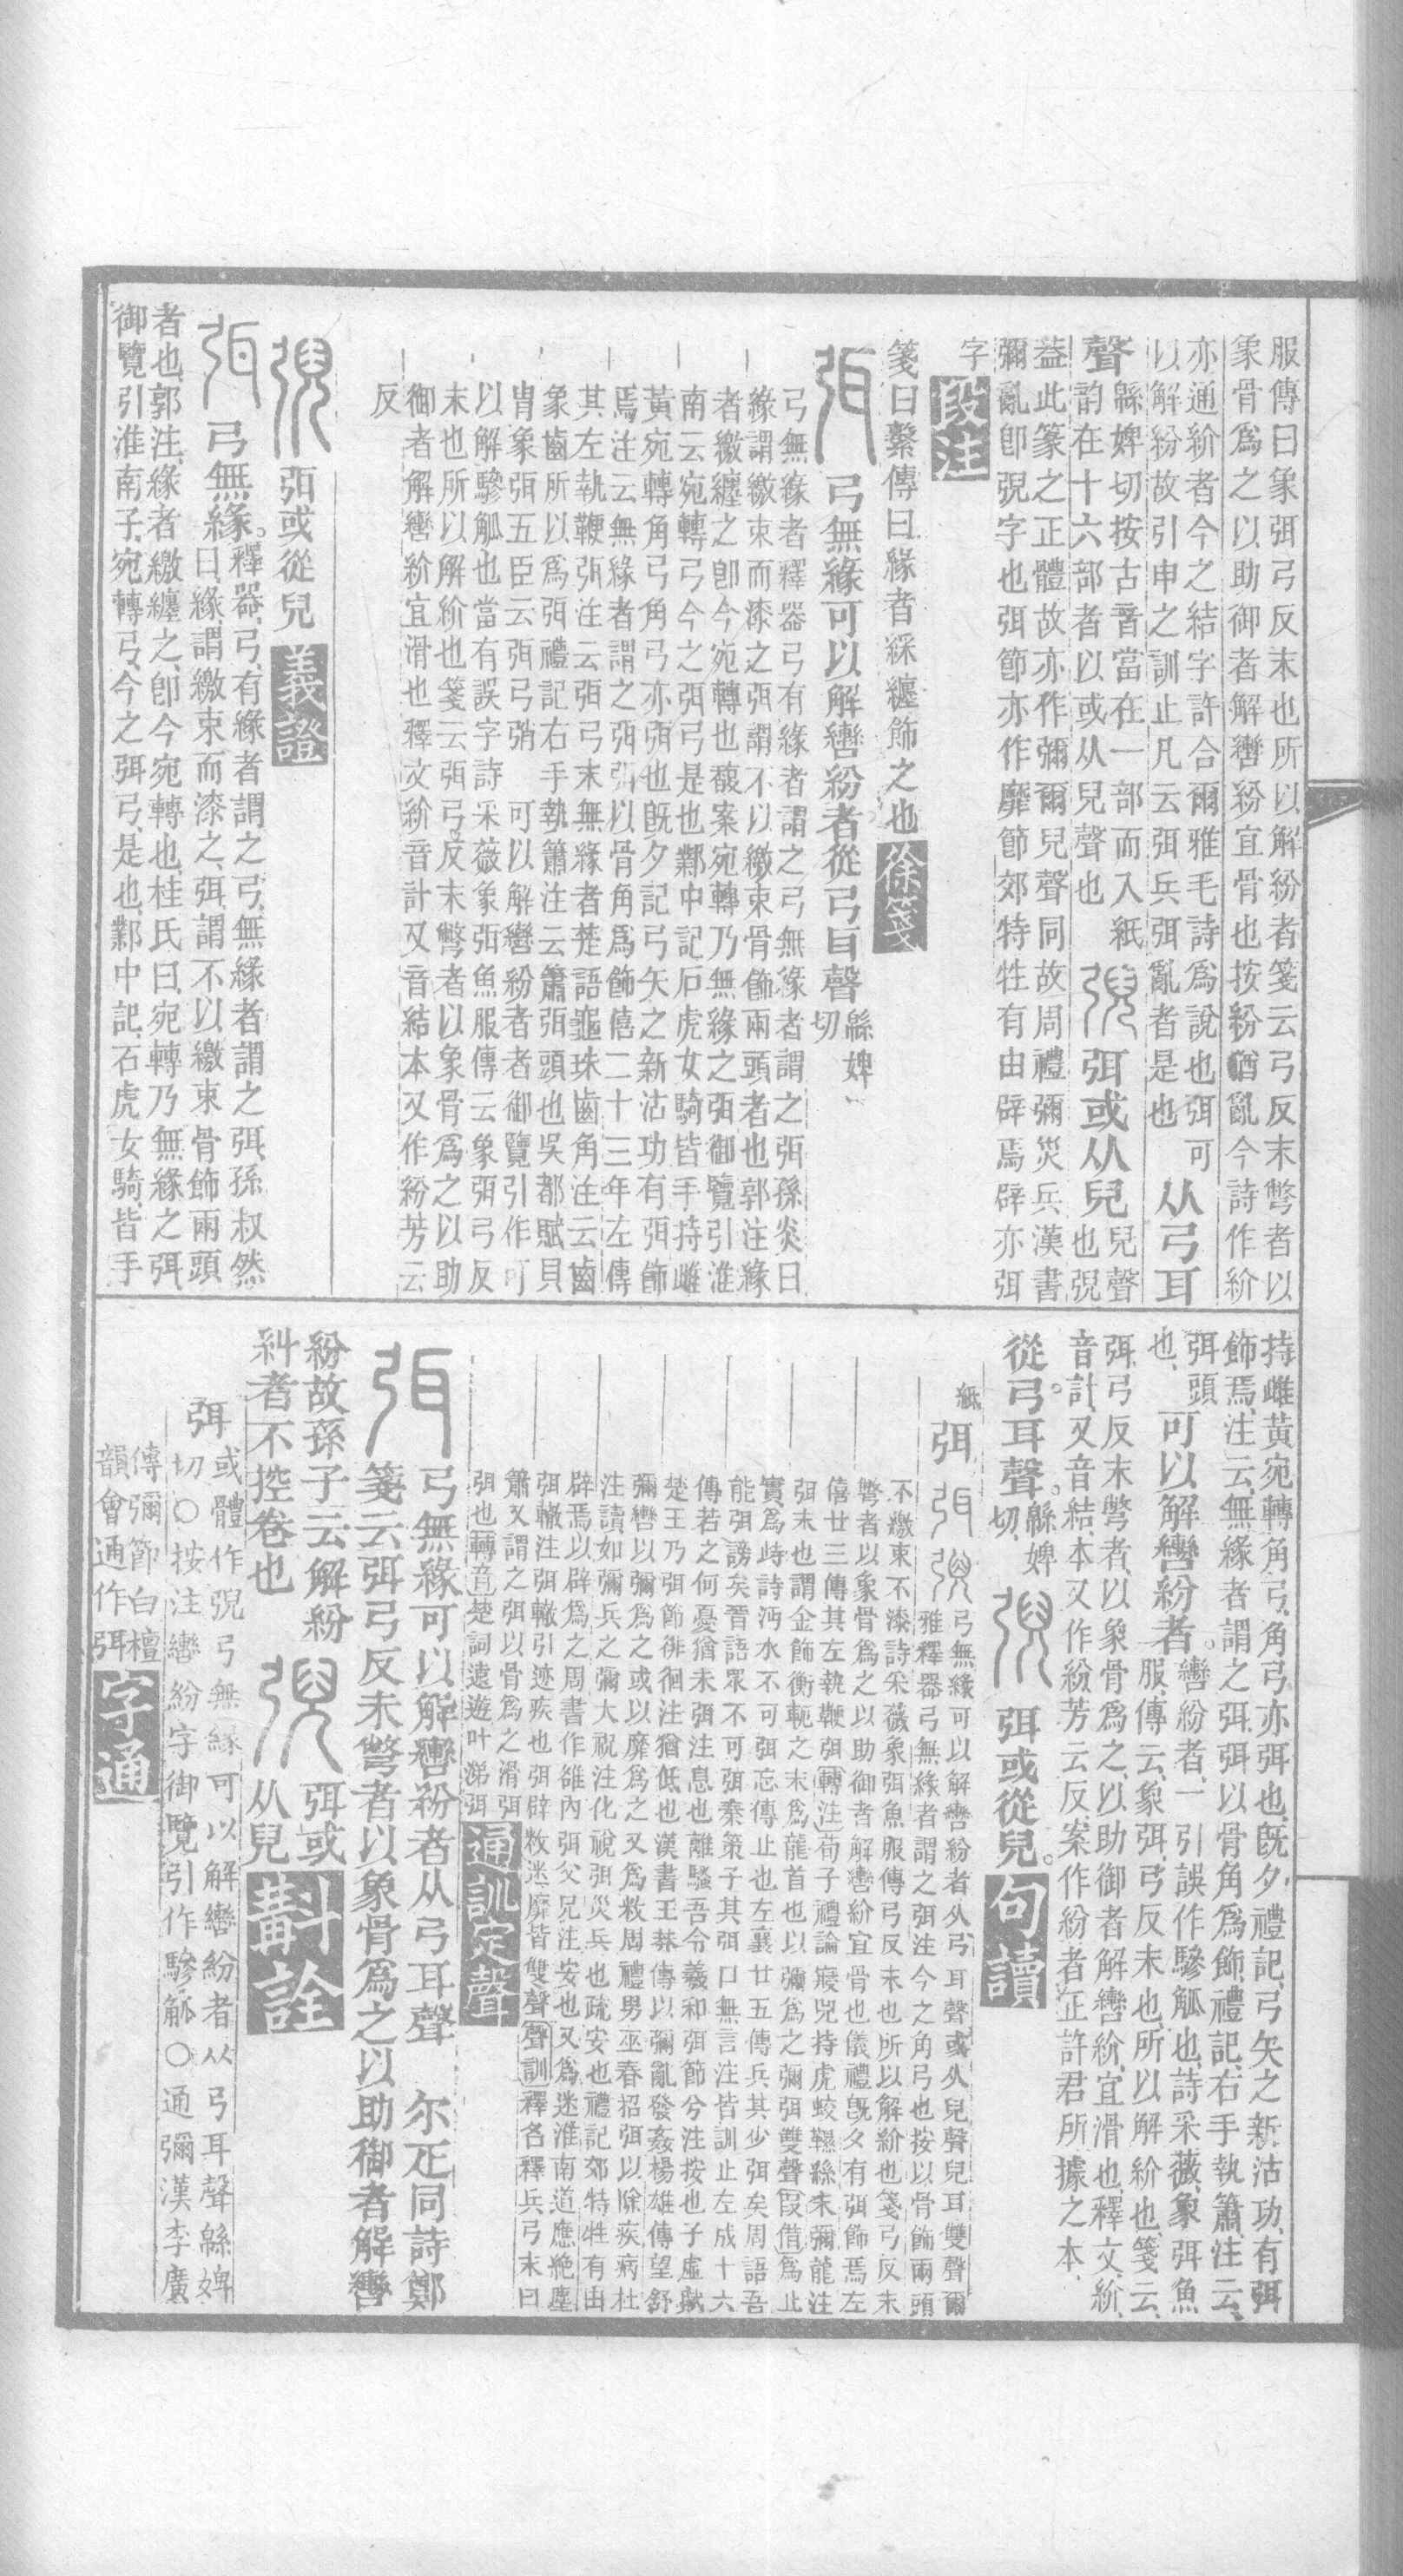 服傳曰象弭弓反末也所以解紛者箋云弓反末彆者以
象骨爲之以助御者解轡紛宜骨也按紛猶亂今詩作紒
亦通紒者今之結字許合爾雅毛詩爲說也弭可
以解紛故引申之訓止凡云弭兵弭亂者是也
从弓耳
聲
緜婢切按古音當在一部而入紙
韵在十六部者以或从兒聲也
弭或从兒
兒聲
也兒
益此篆之正體故亦作彌爾兒聲同故周禮彌災兵漢書
彌亂卽兒字也弭節亦作靡節郊特牲有由辟焉辟亦弭
字
段注
箋曰繫傳曰緣者綵纏飾之也
徐箋
弓無緣可以解轡紛者從弓耳聲
緜婢
切
弓無緣者釋器弓有緣者謂之弓無緣者謂之弭孫炎曰
緣謂繳束而漆之弭謂不以繳束骨飾兩頭者也郭注緣
者繳纏之卽今宛轉也馥案宛轉乃無緣之弭御覽引淮
南云宛轉弓今之弭弓是也鄴中記石虎女騎皆手持雌
黃宛轉角弓角弓亦弭也旣夕記弓矢之新沽功有弭飾
焉注云無緣者謂之弭弭以骨角爲飾僖二十三年左傳
其左執鞭弭注云弭弓末無緣者楚語龜珠齒角注云齒
象齒所以爲弭禮記右手執簫注云簫弭頭也吳都賦貝
胄象弭五臣云弭弓弰 可以解轡紛者者御覽引作可
以解驂觚也當有誤字詩采薇象弭魚服傳云象弭弓反
末也所以解紒也箋云弭弓反末彆者以象骨爲之以助
御者解轡紒宜滑也釋文紒音計又音結本又作紛芳云
反
弭或從兒
義證
弓無緣。
釋器、弓、有緣者謂之弓、無緣者謂之弭、孫叔然
曰、緣、謂繳束而漆之、弭、謂不以繳束骨飾兩頭
者也、郭注、緣者繳纏之、卽今宛轉也、桂氏曰、宛轉乃無緣之弭、
御覽引淮南子、宛轉弓、今之弭弓、是也、鄴中記、石虎女騎、皆手
持雌黃宛轉角弓、角弓亦弭也、旣夕禮記、弓矢之新沽功、有弭
飾焉、注云、無緣者謂之弭、弭以骨角爲飾、禮記、右手執簫、注云、
弭頭
也、
可以解轡紛者。
轡紛者、一引誤作驂觚也、詩采薇、象弭魚
服、傳云、象弭、弓反末也、所以解紒也、箋云、
弭、弓反末彆者、以象骨爲之、以助御者解轡紒、宜滑也、釋文、紒、
音計、又音結、本又作紛芳云反、案作紛者、正許君所據之本、
從弓耳聲。
緜婢
切、
弭或從兒。
句讀
紙
弭
弓無緣可以解轡紛者从弓耳聲或从兒聲兒耳雙聲爾
雅釋器弓無緣者謂之弭注今之角弓也按以骨飾兩頭
不繳束不漆詩采薇象弭魚服傳弓反末也所以解紒也箋弓反末
彆者以象骨爲之以助御者解轡紒宜骨也儀禮旣夕有弭飾焉左
僖廿三傳其左執鞭弭轉注荀子禮論寢兕持虎蛟韅絲末彌龍注
弭末也謂金飾衡軛之末爲龍首也以彌爲之彌弭雙聲叚借爲止
實爲歭詩沔水不可弭忘傳止也左襄廿五傳兵其少弭矣周語吾
能弭謗矣晉語眾不可弭秦策子其弭口無言注皆訓止左成十六
傳若之何憂猶未弭注息也離騷吾令羲和弭節兮注按也子虛賦
楚王乃弭節徘徊注猶低也漢書王莽傳以彌亂發姦楊雄傳望舒
彌轡以彌爲之或以靡爲之又爲敉周禮男巫春招弭以除疾病杜
注讀如彌兵之彌大祝注化祝弭災兵也疏安也禮記郊特牲有由
辟焉以辟爲之周書作雒內弭父兄注安也又爲迷淮南道應絶塵
弭轍注弭轍引迹疾也弭辟敉迷靡皆雙聲聲訓釋名釋兵弓末曰
簫又謂之弭以骨爲之滑弭
弭也轉音楚詞遠遊叶涕弭
通訓定聲
弓無緣可以解轡紛者从弓耳聲 尔疋同詩鄭
箋云弭弓反末彆者以象骨爲之以助御者解轡
紛故孫子云解紛
糾者不控卷也
弭或
从兒
斠詮
弭
或體作兒弓無緣可以解轡紛者从弓耳聲緜婢
切○按注轡紛字御覽引作驂觚○通彌漢李廣
傳彌節白檀
韻會通作弭
字通